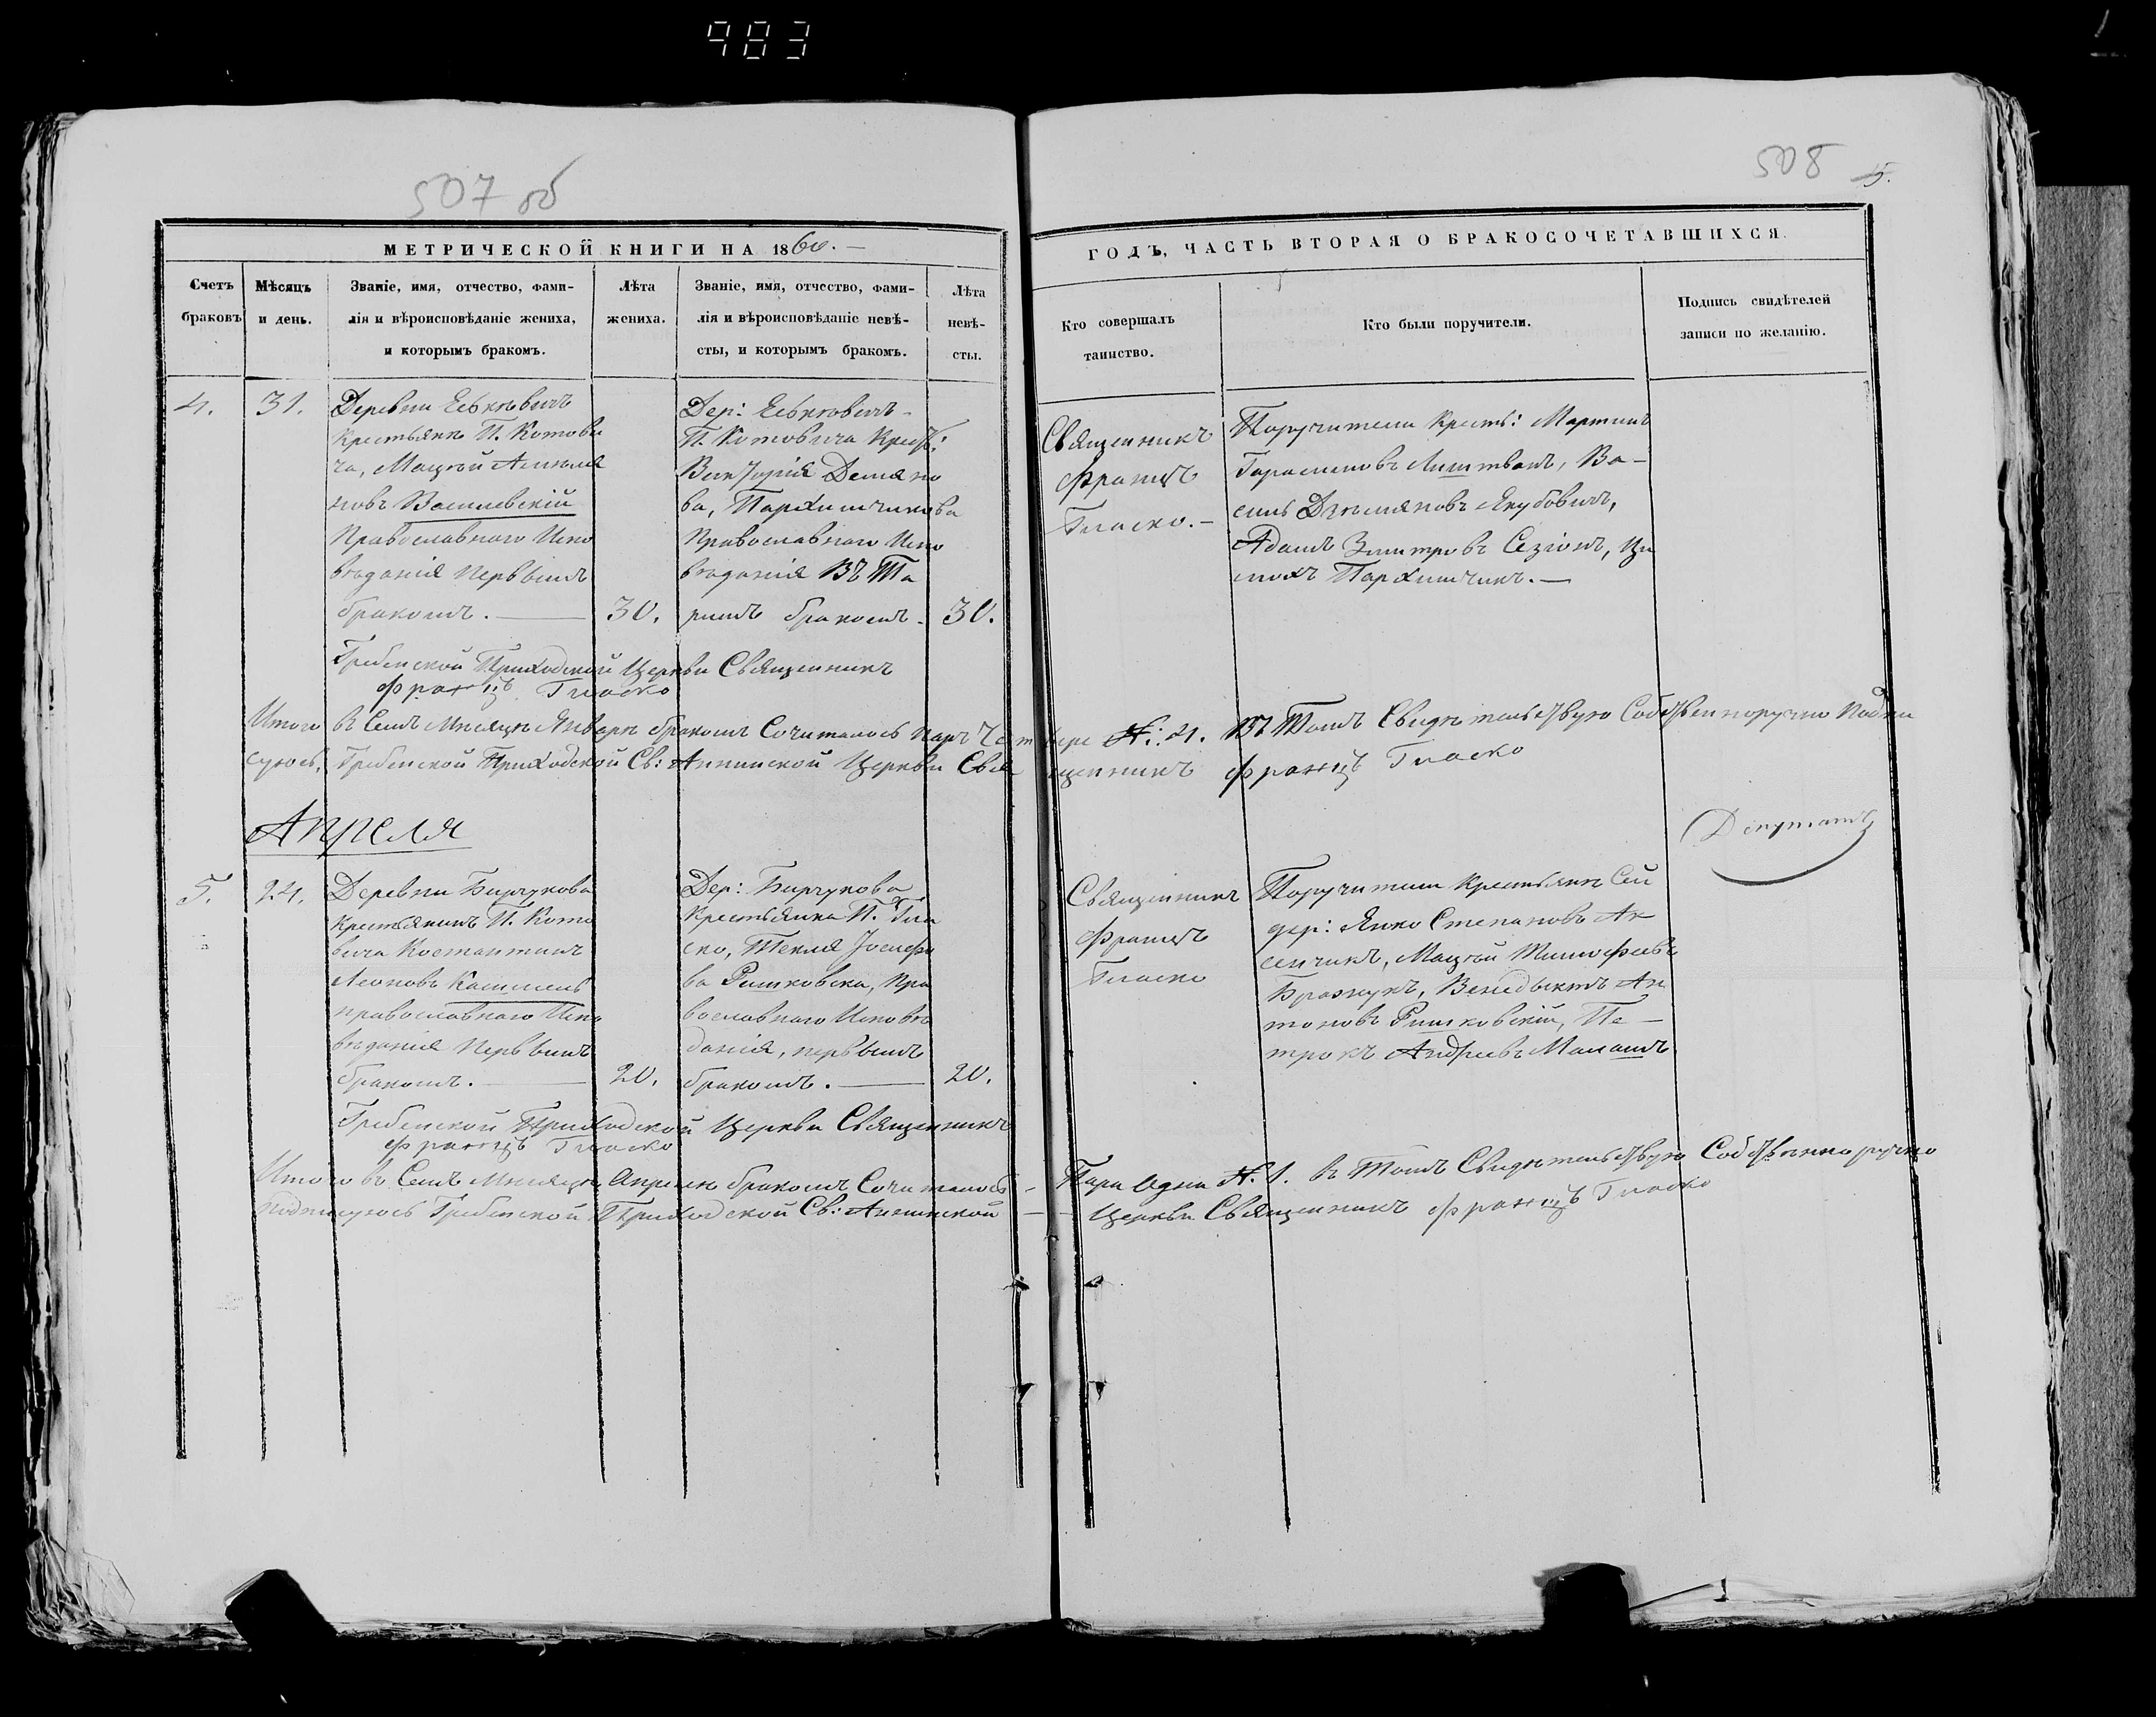 983
507 об
508 5.
МЕТРИЧЕСКОЙ КНИГИ НА 1860. —
ГОДЪ, ЧАСТЬ ВТОРАЯ О БРАКОСОЧЕТАВШИХСЯ.
Счетъ
браковъ
Мѣсяцъ
и день.
Званіе, имя, отчество, фами-
лія и вѣроисповѣданіе жениха,
и которымъ бракомъ.
Лѣта
жениха.
Званіе, имя, отчество, фами-
лія и вѣроисповѣданіе невѣ-
сты, и которымъ бракомъ.
Лѣта
невѣ-
сты.
Кто совершалъ
таинство.
Кто были поручители.
Подпись свидѣтелей
записи по желанію.
4.
31.
Деревни
Крестьянъ П. Котови
ча, Мацѣй
новъ Василевскій
Православнаго Испо
вѣданія первымъ
бракомъ. —
30.
Дер:
П. Котовича Крест:
Викторія Демяно
ва, Пархимчикова
Православнаго Испо
вѣданія Въ Та
рымъ бракомъ.
30.
Священникъ
Францъ
Гласко. –
Поручители Крестъ: Мартинъ
Гарасимовъ Литвакъ, Ва-
силь Дземяновъ Якубовичъ,
Адамъ Змитровъ Сезіонъ, Ци
мохъ Пархимчикъ. —
Гребенской Приходской Церкви Священникъ
Францъ Гласко
Итого въ Семъ Мѣсяцѣ Январѣ бракомъ Сочиталось паръ Четыре №: 4. Въ Томъ Свидѣтельствую Собственноручно Подпи
суюсь, Гребенской Приходской Св: Аннинской Церкви Священникъ Францъ Гласко
Апреля
Депутатъ
5.
24.
Деревни Бирчукова
Крестьянинъ П. Кото
вича Костантинъ
Леоновъ
православнаго Испо
вѣданія первымъ
бракомъ. —
20.
Дер: Бирчукова
Крестьянка П. Гла
ско, Текля Іосифо
ва Рышковска, Пра
вославнаго Исповѣ
данія, первымъ
бракомъ. —
20.
Священникъ
Францъ
Гласко
Поручители Крестьянъ Сей
дер: Янко Степановъ Ак
сенчикъ, Мацѣй Тимофеевъ
Бражукъ, Венедыктъ Ан
тоновъ Рышковскій, Пе —
трокъ Андреевъ
Гребенской Приходской Церкви Священникъ
Францъ Гласко
Итого въ Семъ Мѣсяцѣ Апрелѣ бракомъ Сочиталось - Пара Одна №. 1. Въ Томъ Свидѣтельствую Собственноручно
подписуюсь Гребенской Приходской Св: Аннинской — Церкви Священникъ Францъ Гласко